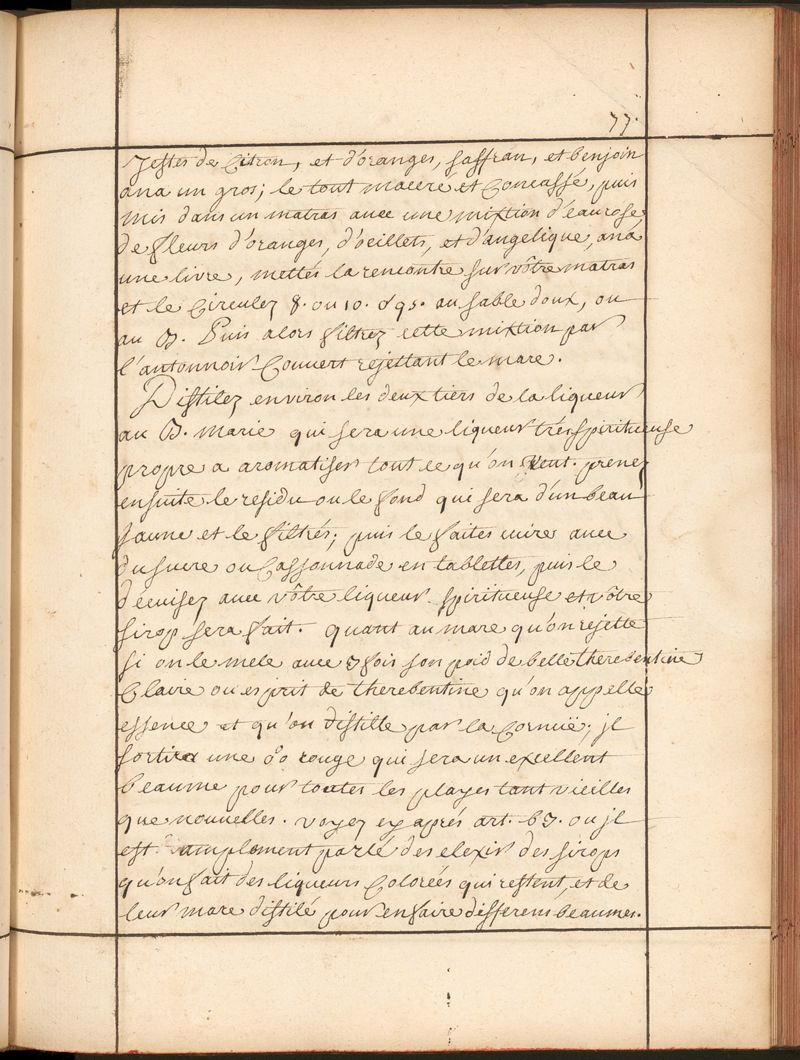 77.
Zestes de Citron, et d'oranges, saffran, et benjoin
ana un gros; le tout maceré et Concassé, puis
mis dans un matras avec une mixtion d'eau rose,
de fleurs d'oranges, d'oeillets, et d'angelique, ana
une livre, mettés la rencontre sur vôtre matras
et le Circulez 8. ou 10. au sable doux, ou
au B. Puis alors filtrez cette mixtion par
l'antonnoir Couvert rejettant le marc.
Distilez environ les deux tiers de la liqueur
au B. Marie qui sera une liqueur trés spiritueuse
propre a aromatiser tout ce qu'on veut. prenez
ensuite le residu ou le fond qui sera d'un beau
Jaune et le filtrés; puis le faites cuire avec
du sucre ou Cassonnade en tablettes, puis le
décuisez avec vôtre liqueur spiritueuse et vôtre
sirop sera fait. quant au marc qu'on rejette
si on le mele avec 3 fois son poid de belle therebentine
Claire ou esprit de therebentine qu'on appelle
essence et qu'on distille par la Cornuë; jl
sortira une rouge qui sera un excellent
beaume pour toutes les playes tant vieilles
que nouvelles. voyez cy aprés art. ou jl
est amplement parlé des elexir des sirops
qu'on fait des liqueurs Colorées qui restent, et de
leur marc distilé pour en faire differens beaumes.